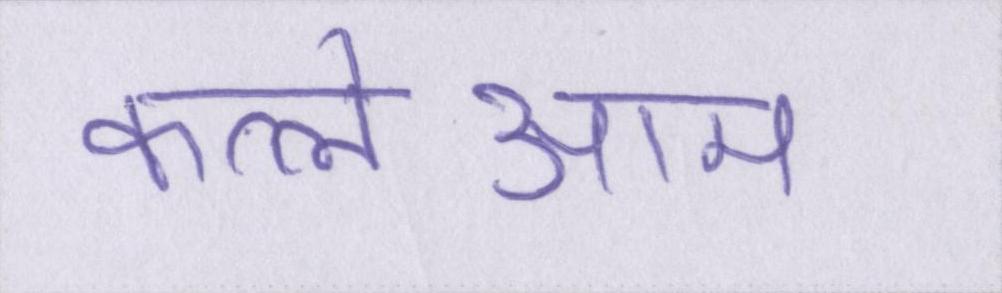 कत्लेआम